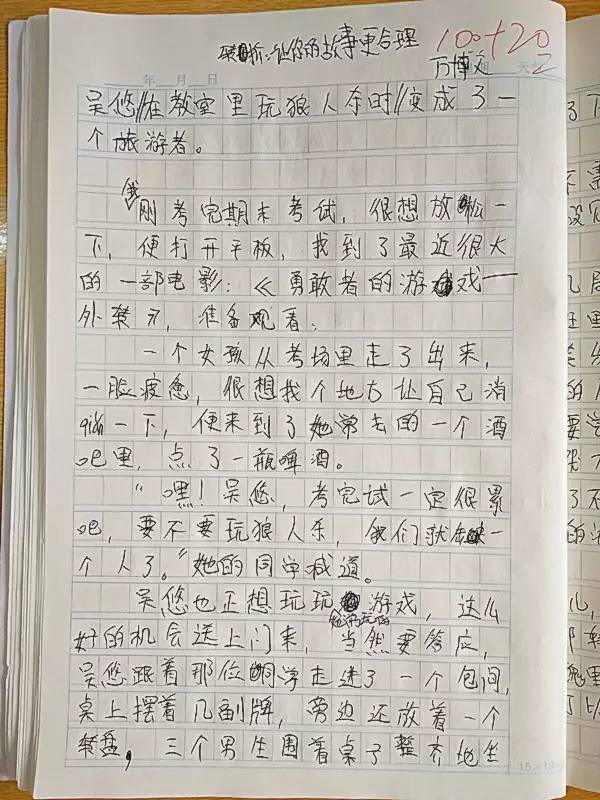 转折：让你的故事更合理
100+20
万博文
年 月 日
吴悠//在教室里玩狼人杀时//变成了一
个旅游者。
我刚考完期末考试，很想放松一
下，便打开平板，找到了最近很火
的一部电影：《勇敢者的游戏一
外转》，准备观看：
一个女孩从考场里走了出来，
一脸疲惫，很想找个地方让自己消
qiǎn一下，便来到了她常去的一个酒
吧里，点了一瓶啤酒。
“嘿！吴悠，考完试一定很累
吧，要不要玩狼人杀，我们就缺一
个人了。”她的同学喊道。
吴悠也正想玩玩游戏，这么
好的机会送上门来，当然要答应，
吴悠跟着那位同学走进了一个包间，
桌上摆着几副牌，旁边还放着一个
转盘，三个男生围着桌子整齐地坐
15×19